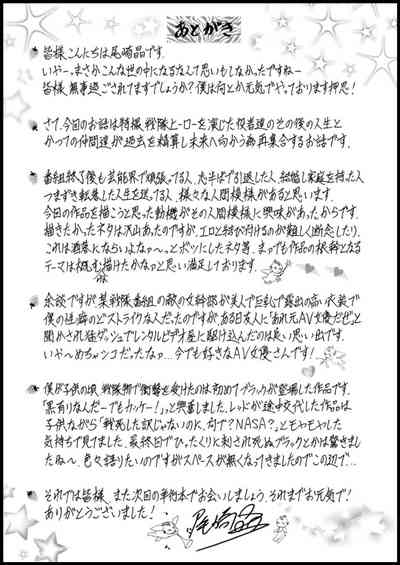 あとがき
皆様こんにちは尾崎晶です。
いやー、まさかこんな世の中になるなんて思いもしなかったですねー
皆様、無事過ごされてますでしょうか?僕は何とか元気でやっております押忍!
さて、今回のお話は特撮、戦隊ヒーローを演じた役者達のその後の人生と
かつての仲間達が過去を精算し未来へ向かう為再集合するお話です。
番組終了後も芸能界で頑張ってる人、志半ばで引退した人、結婚し家庭を持った人
つまずき転落した人生を送ってる人、様々な人間模様があると思います。
今回の作品を描こうと思った動機がその人間模様に興味があったからです。
描きたかったネタは沢山あったのですが、エロと結び付けるのが難しく断念したり、
これは洒落にならいよなぁ〜っとボツにしたネタ等、まっでも作品の根幹となる
テーマは概む描けたかなっと思い満足しております。
余談ですが某戦隊番組の敵の女幹部が美人で巨乳で露出の高い衣装で
僕の性癖のどストライクな人だったのですが、ある日友人に「あれ元AV女優だぜ」と
聞かされ猛ダッシュでレンタルビデオ屋に駆け込んだのは良い思い出です。
いや〜めちゃシコだったなっ、今でも好きなAV女優さんです!
僕が子供の頃、戦隊物で衝撃を受けたのは初めてブラックが登場した作品です。
「黒有りなんだーでもカッケー!」と興奮しました。レッドが途中交代した作品は
子供ながら「戦死した訳じゃないのに、何で?NASA?」とモヤモヤした
気持ちで見てました。最終回でひったくりに刺され死ぬブラックとかは驚きまし
たね〜、色々語りたいのですがスペースが無くなってきましたのでこの辺で…
それでは皆様、また次回の単行本でお会いしましょう、それまでお元気で!
ありがとうございました!
尾崎晶